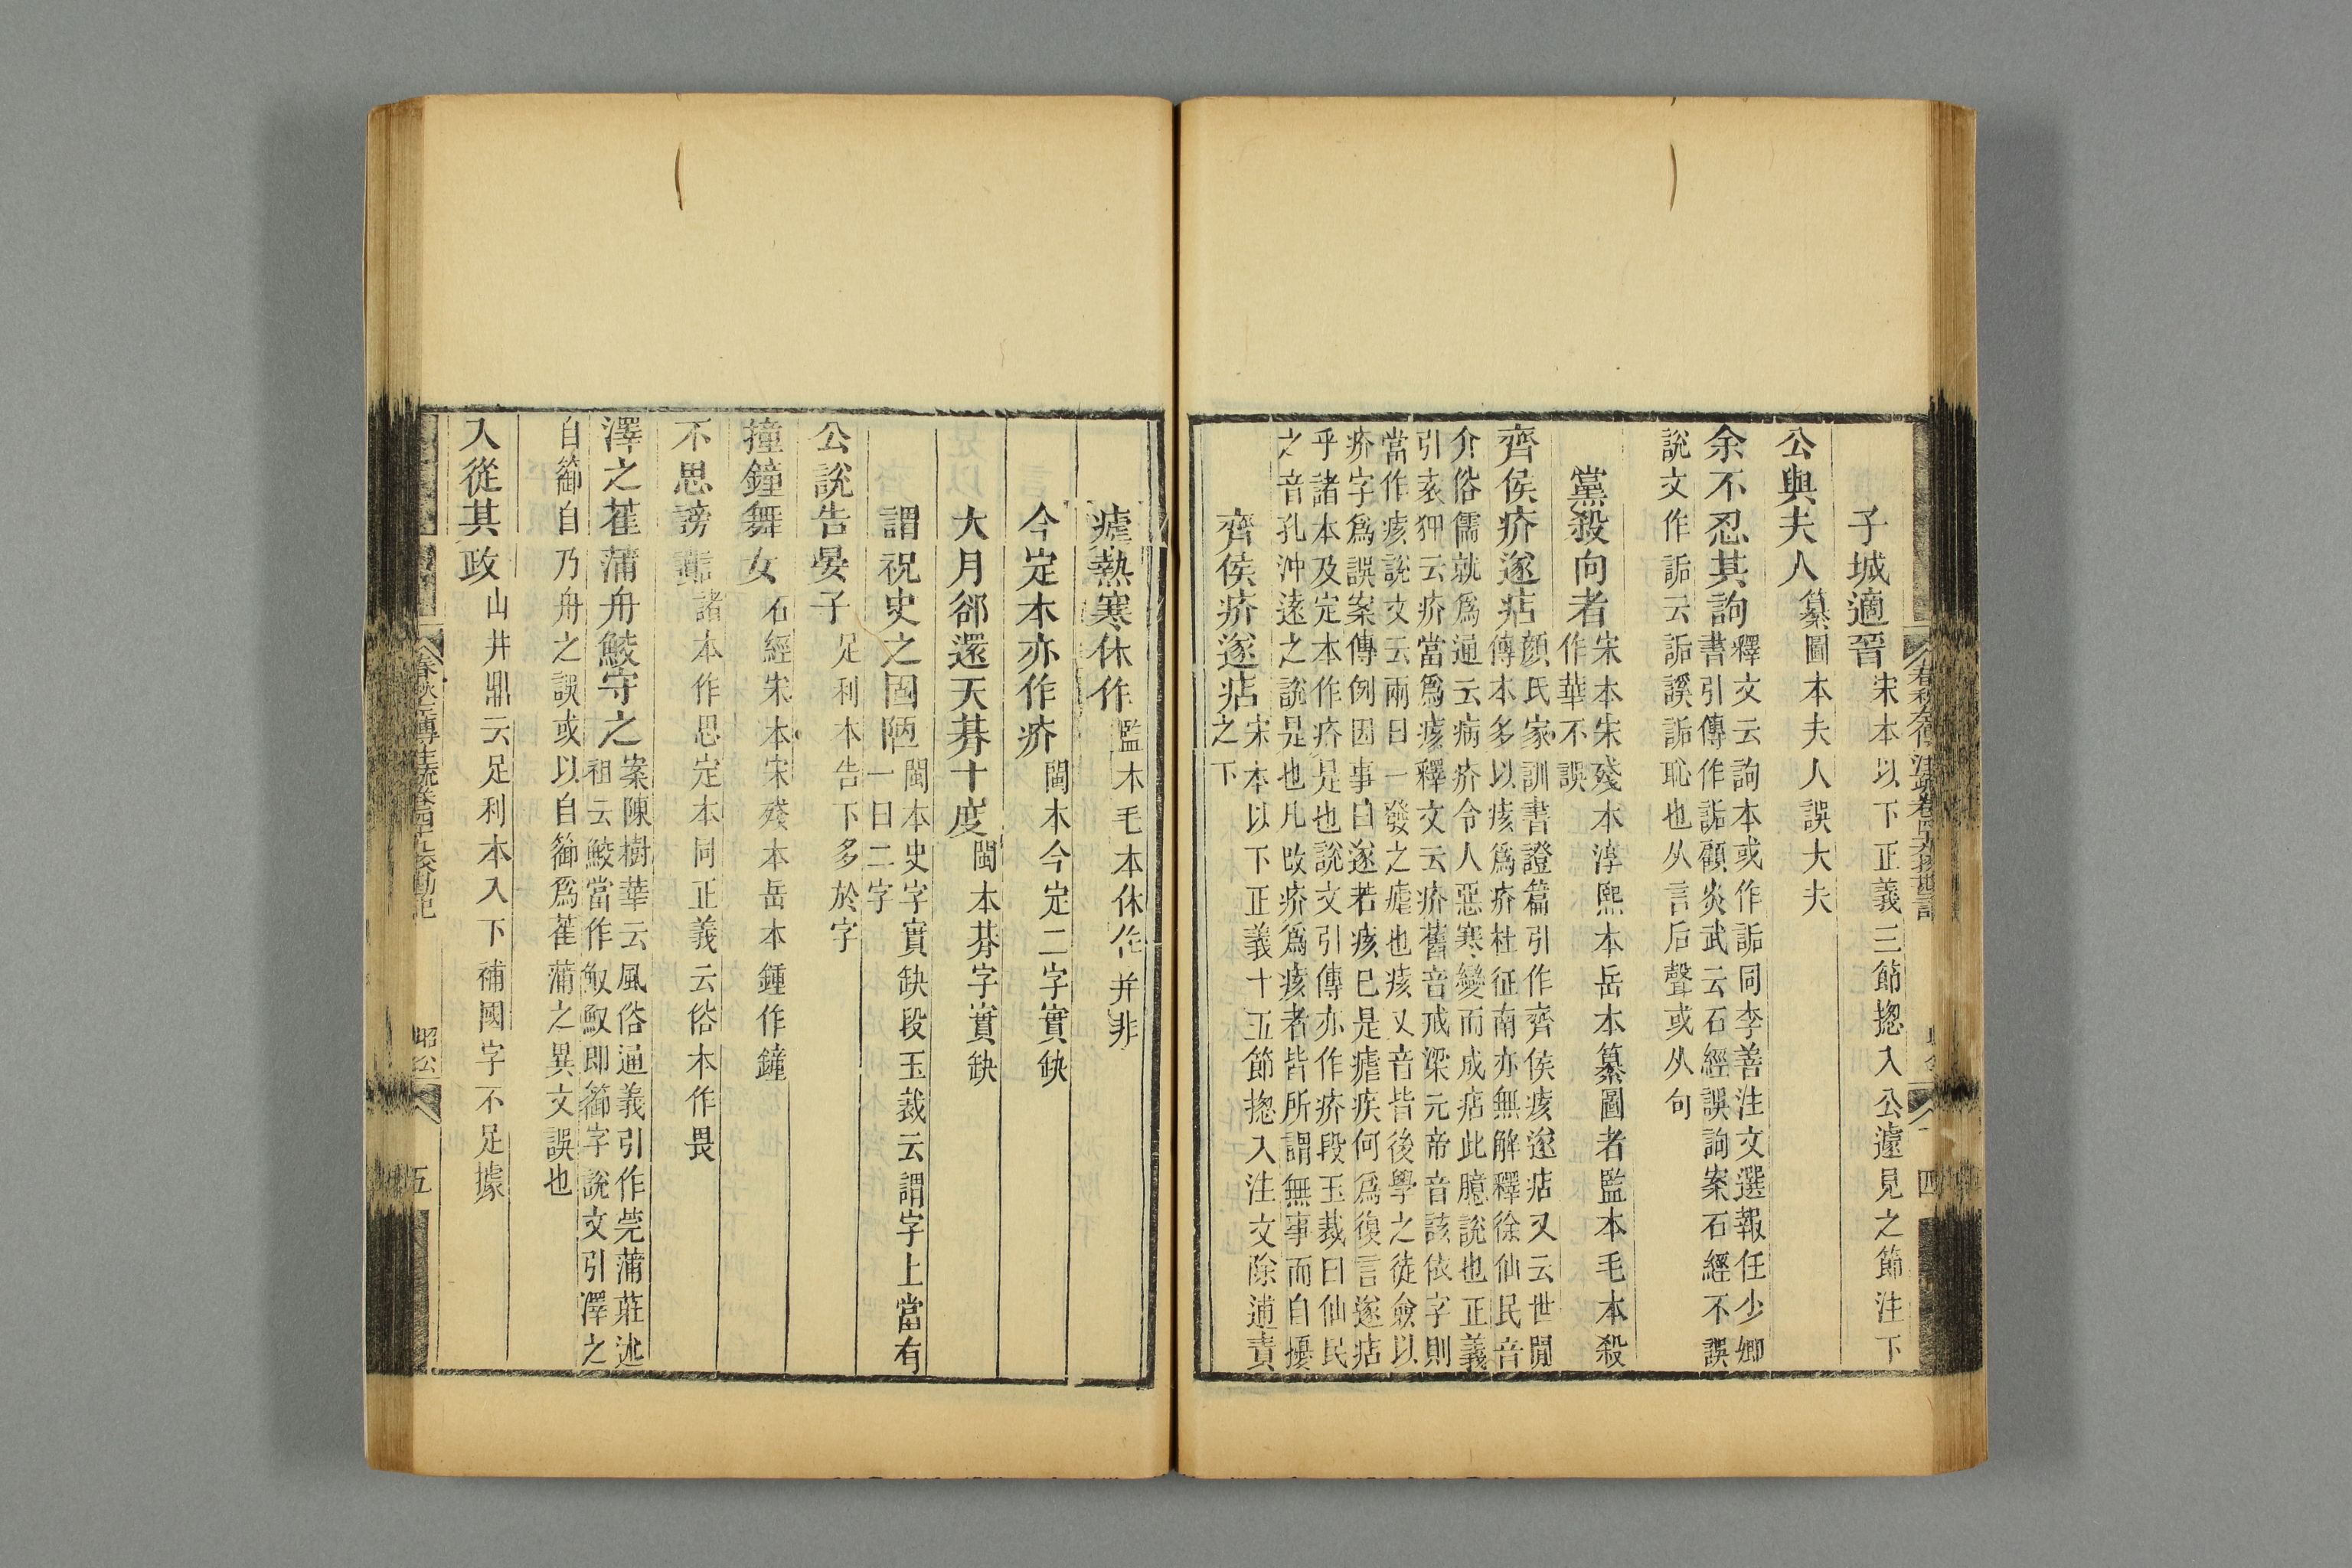 子城適晉宋本以下正義三節揔入公遽見之節注下
公與夫人纂圖本夫人誤大夫
余不忍其詢釋文云詢本或作詬同李善注文選報任少卿
書引傳作詬顧炎武云石經誤詢案石經不誤
說文作詬云詬謑詬恥也从言后聲或从句
黨殺向者宋本宋殘本淳熙本岳本纂圖者監本毛本殺
作華不誤
齊侯疥遂痁顏氏家訓書證篇引作齊侯痎遂痁又云世閒
傳本多以痎為疥杜征南亦無解釋徐仙民音
介俗儒就為通云病疥令人惡寒變而成痁此臆說也正義
引袁狎云疥當為痎釋文云疥舊音戒梁元帝音該依字則
當作痎說文云兩日一發之瘧也痎又音皆後學之徒僉以
疥字為誤案傳例因事曰遂若痎已是瘧疾何為復言遂痁
乎諸本及定本作疥是也說文引傳亦作疥段玉裁曰仙民
之音孔沖遠之說是也凡改疥為痎者皆所謂無事而自擾
齊侯疥遂痁宋本以下正義十五節揔入注文除逋責
之下
瘧熱寒休作監本毛本休作并非
今定本亦作疥閩本今定二字實缺
大月郤還天朞十度閩本朞字實缺
謂祝史之固陋閩本史字實缺段玉裁云謂字上當有
一曰二字
公說告晏子足利本告下多於字
撞鐘舞女石經宋本宋殘本岳本鍾作鐘
不思謗讟諸本作思定本同正義云俗本作畏
澤之萑蒲舟鮫守之案陳樹華云風俗通義引作莞蒲莊述
祖云鮫當作䱷䱷即籞字說文引澤之
自籞自乃舟之誤或以自籞為萑蒲之異文誤也
入從其政山井鼎云足利本入下補國字不足據
春秋左傳注疏卷四十九挍勘記
昭公
五
四